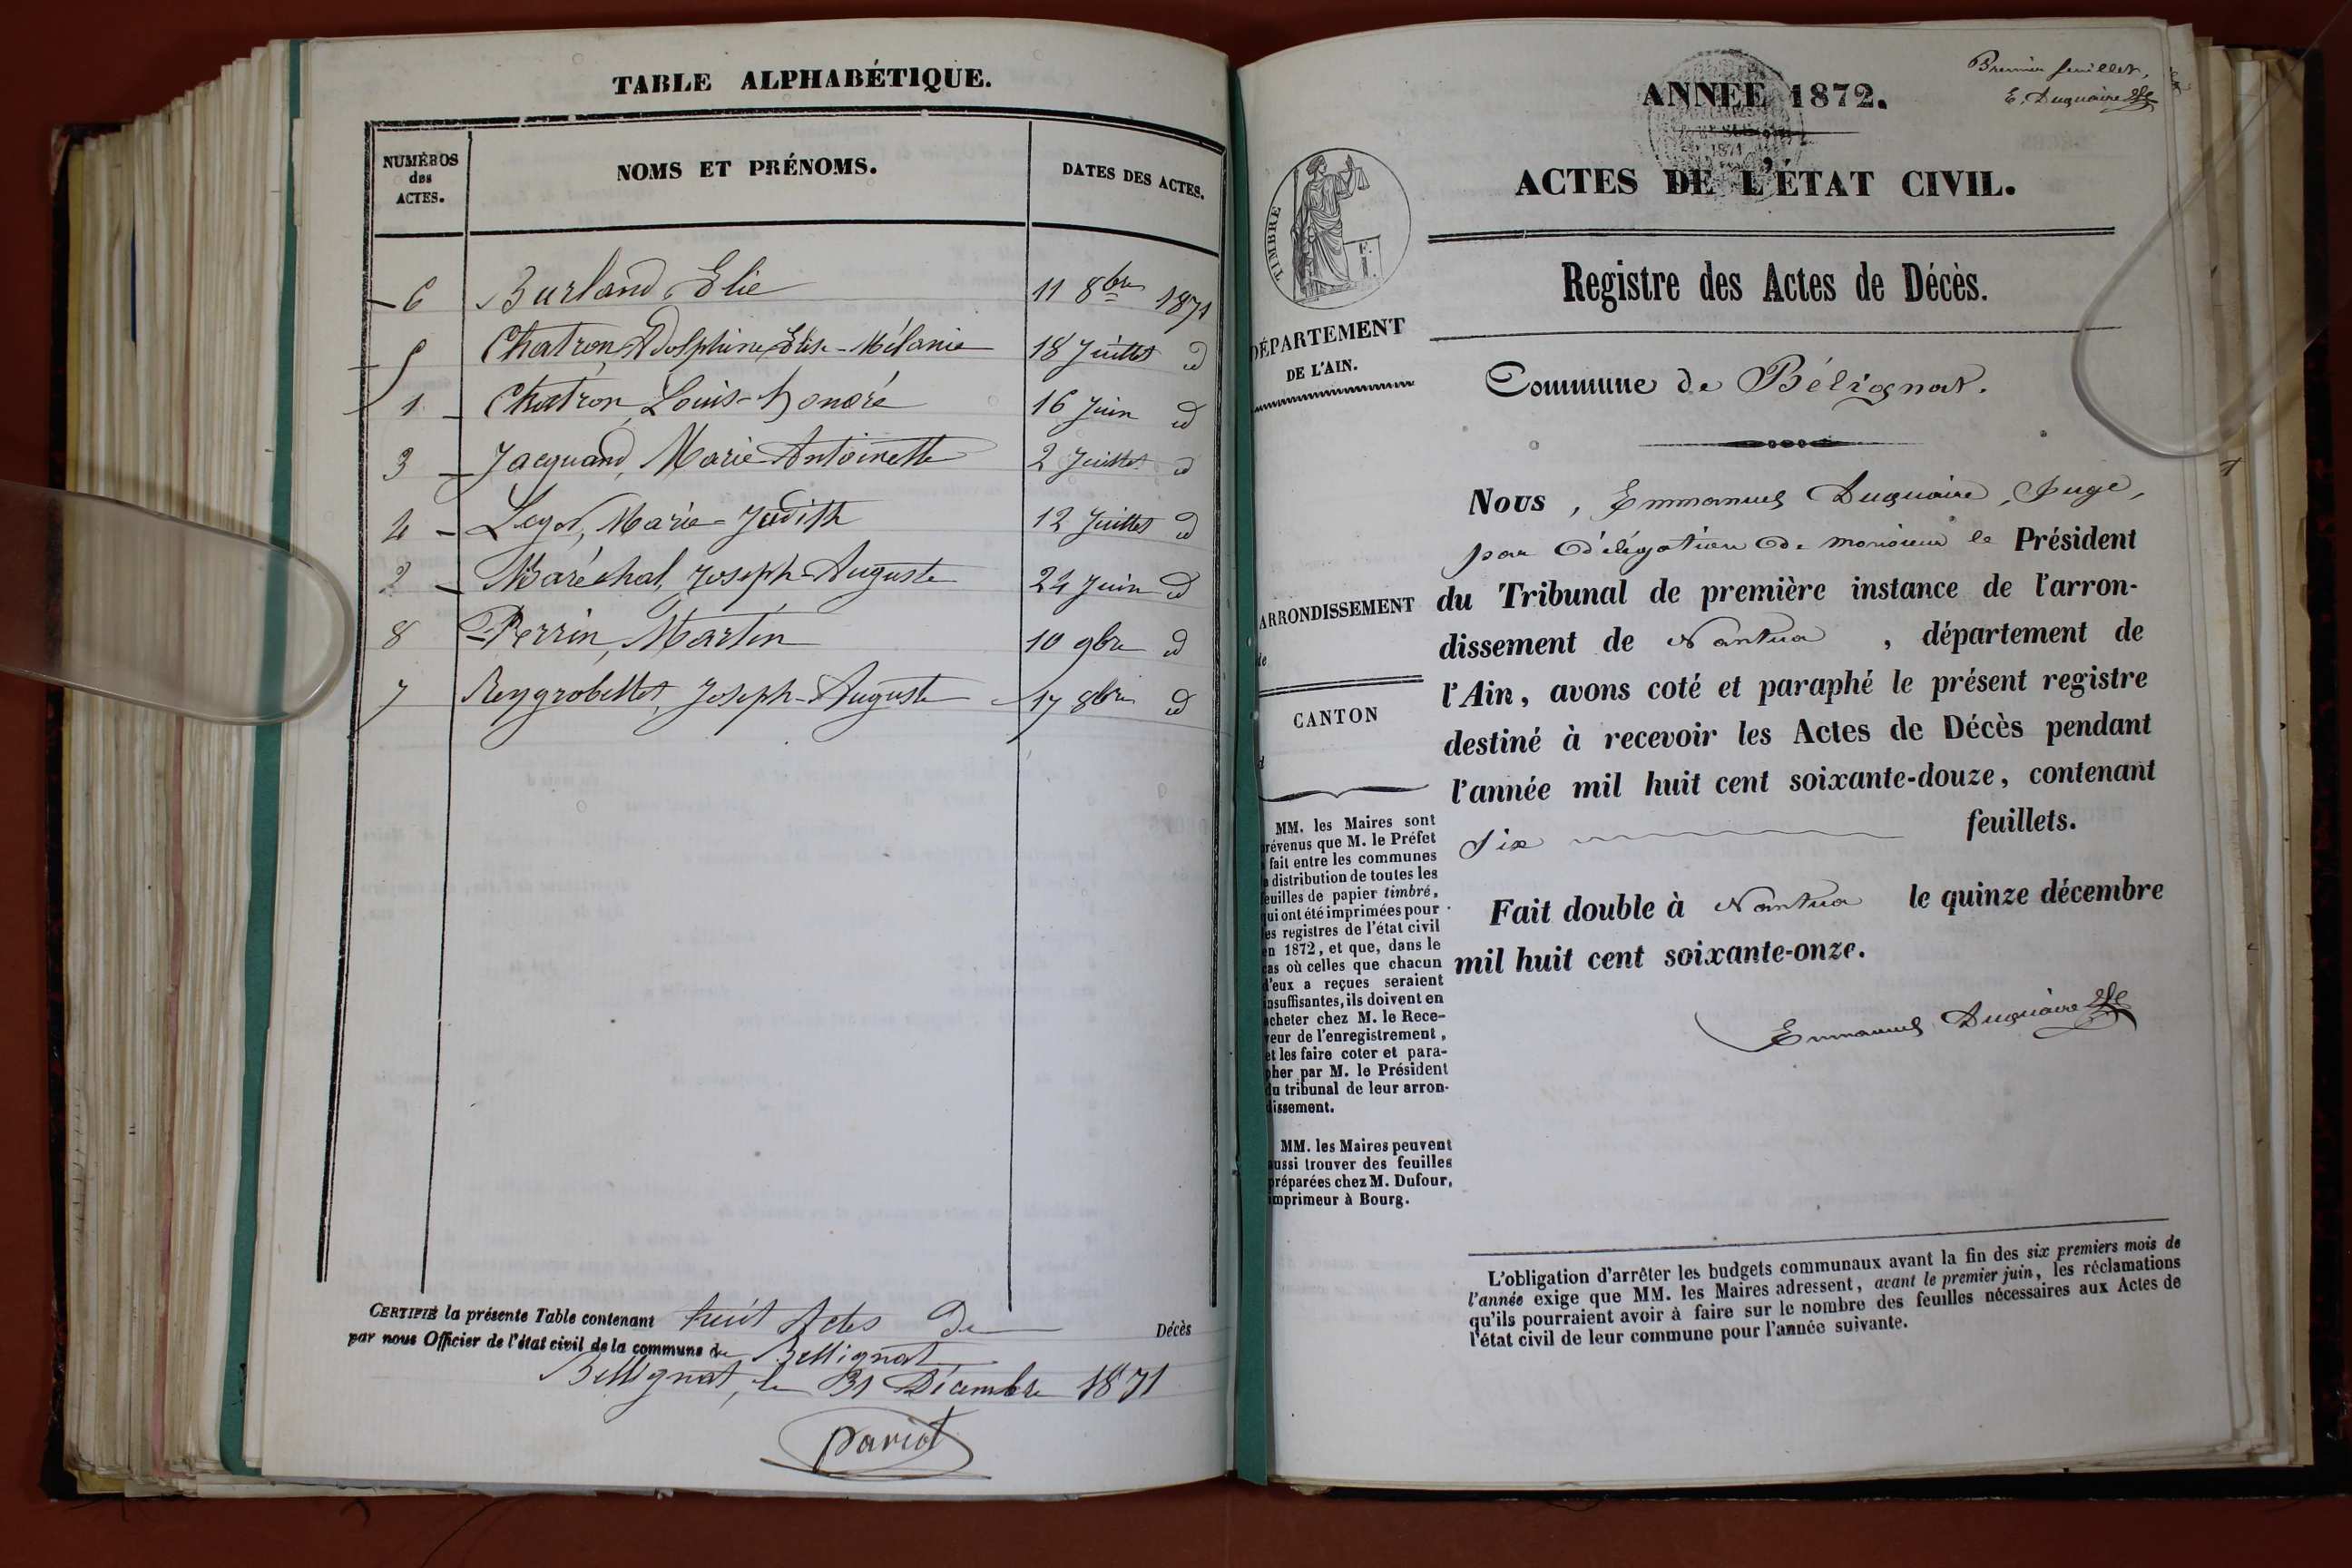 TABLE ALPHABÉTIQUE.
NUMÉROS des ACTES. NOMS ET PRÉNOMS. DATES DES ACTES.
6 Burland, Elie 11 8bre 1871
5 Chatron, Adolphine, Elise-Mélanie 18 Juillet id
1 Chatron, Louis-honoré 16 Juin id
3 Jacquand, Marie-Antoinette 2 Juillet id
4 Marie-Judith 12 Juillet id
2 Maréchal, Joseph-Auguste 24 Juin id
8 Perrin, Martin 10 9bre id
7 Reygrobellet, Joseph-Auguste 17 8bre id
CERTIFIÉ la présente Table contenant huit Actes de Décès
par nous Officier de l'état civil de la commune de Bellignat
Bellignat, le 31 Décembre 1871
Pariot
Premier feuillet,
E. Duquaire
ANNÉE 1872.
1871
ACTES DE L'ÉTAT CIVIL.
TIMBRE
F.
I.
Registre des Actes de Décès.
DÉPARTEMENT
DE L'AIN.
Commune de Bélignat.
Nous, Emmanuel Duquaire, Juge,
par délégation de monsieur le Président
du Tribunal de première instance de l'arron-
dissement de Nantua, département de
l'Ain, avons coté et paraphé le présent registre
destiné à recevoir les Actes de Décès pendant
l'année mil huit cent soixante-douze, contenant
six feuillets.
Fait double à Nantua le quinze décembre
mil huit cent soixante-onze.
Emmanuel Duquaire
ARRONDISSEMENT
de
CANTON
d
MM. les Maires sont
prévenus que M. le Préfet
a fait entre les communes
la distribution de toutes les
feuilles de papier timbré,
qui ont été imprimées pour
les registres de l'état civil
en 1872, et que, dans le
cas où celles que chacun
d'eux a reçues seraient
insuffisantes, ils doivent en
acheter chez M. le Rece-
veur de l'enregistrement,
et les faire coter et para-
pher par M. le Président
du tribunal de leur arron-
dissement.
MM. les Maires peuvent
aussi trouver des feuilles
préparées chez M. Dufour,
imprimeur à Bourg.
L'obligation d'arrêter les budgets communaux avant la fin des six premiers mois de
l'année exige que MM. les Maires adressent, avant le premier juin, les réclamations
qu'ils pourraient avoir à faire sur le nombre des feuilles nécessaires aux Actes de
l'état civil de leur commune pour l'année suivante.